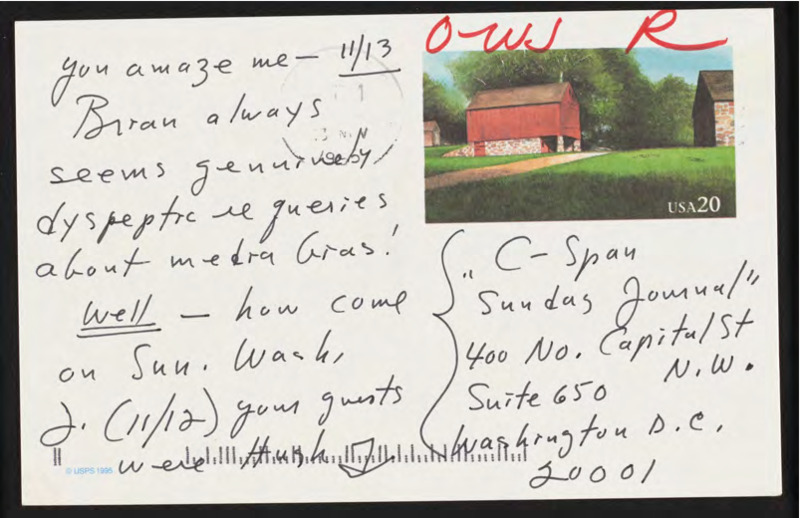 you amaze me— 11/13
Brian always
seems genuinely
dyspeptic re queries
about media bias!
Well — how come
on Sun. Wash.
J. (11/12) your guests
were Hugh
O-WJ R
USA20
"C-Span
Sunday Journal"
400 No. Capital St
N.W.
Suite 650
Washington D.C.
20001
© USPS 1995